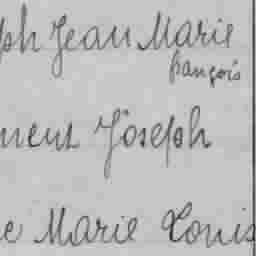 ph Jean Marie
françois
ment Joseph
e Marie Louis